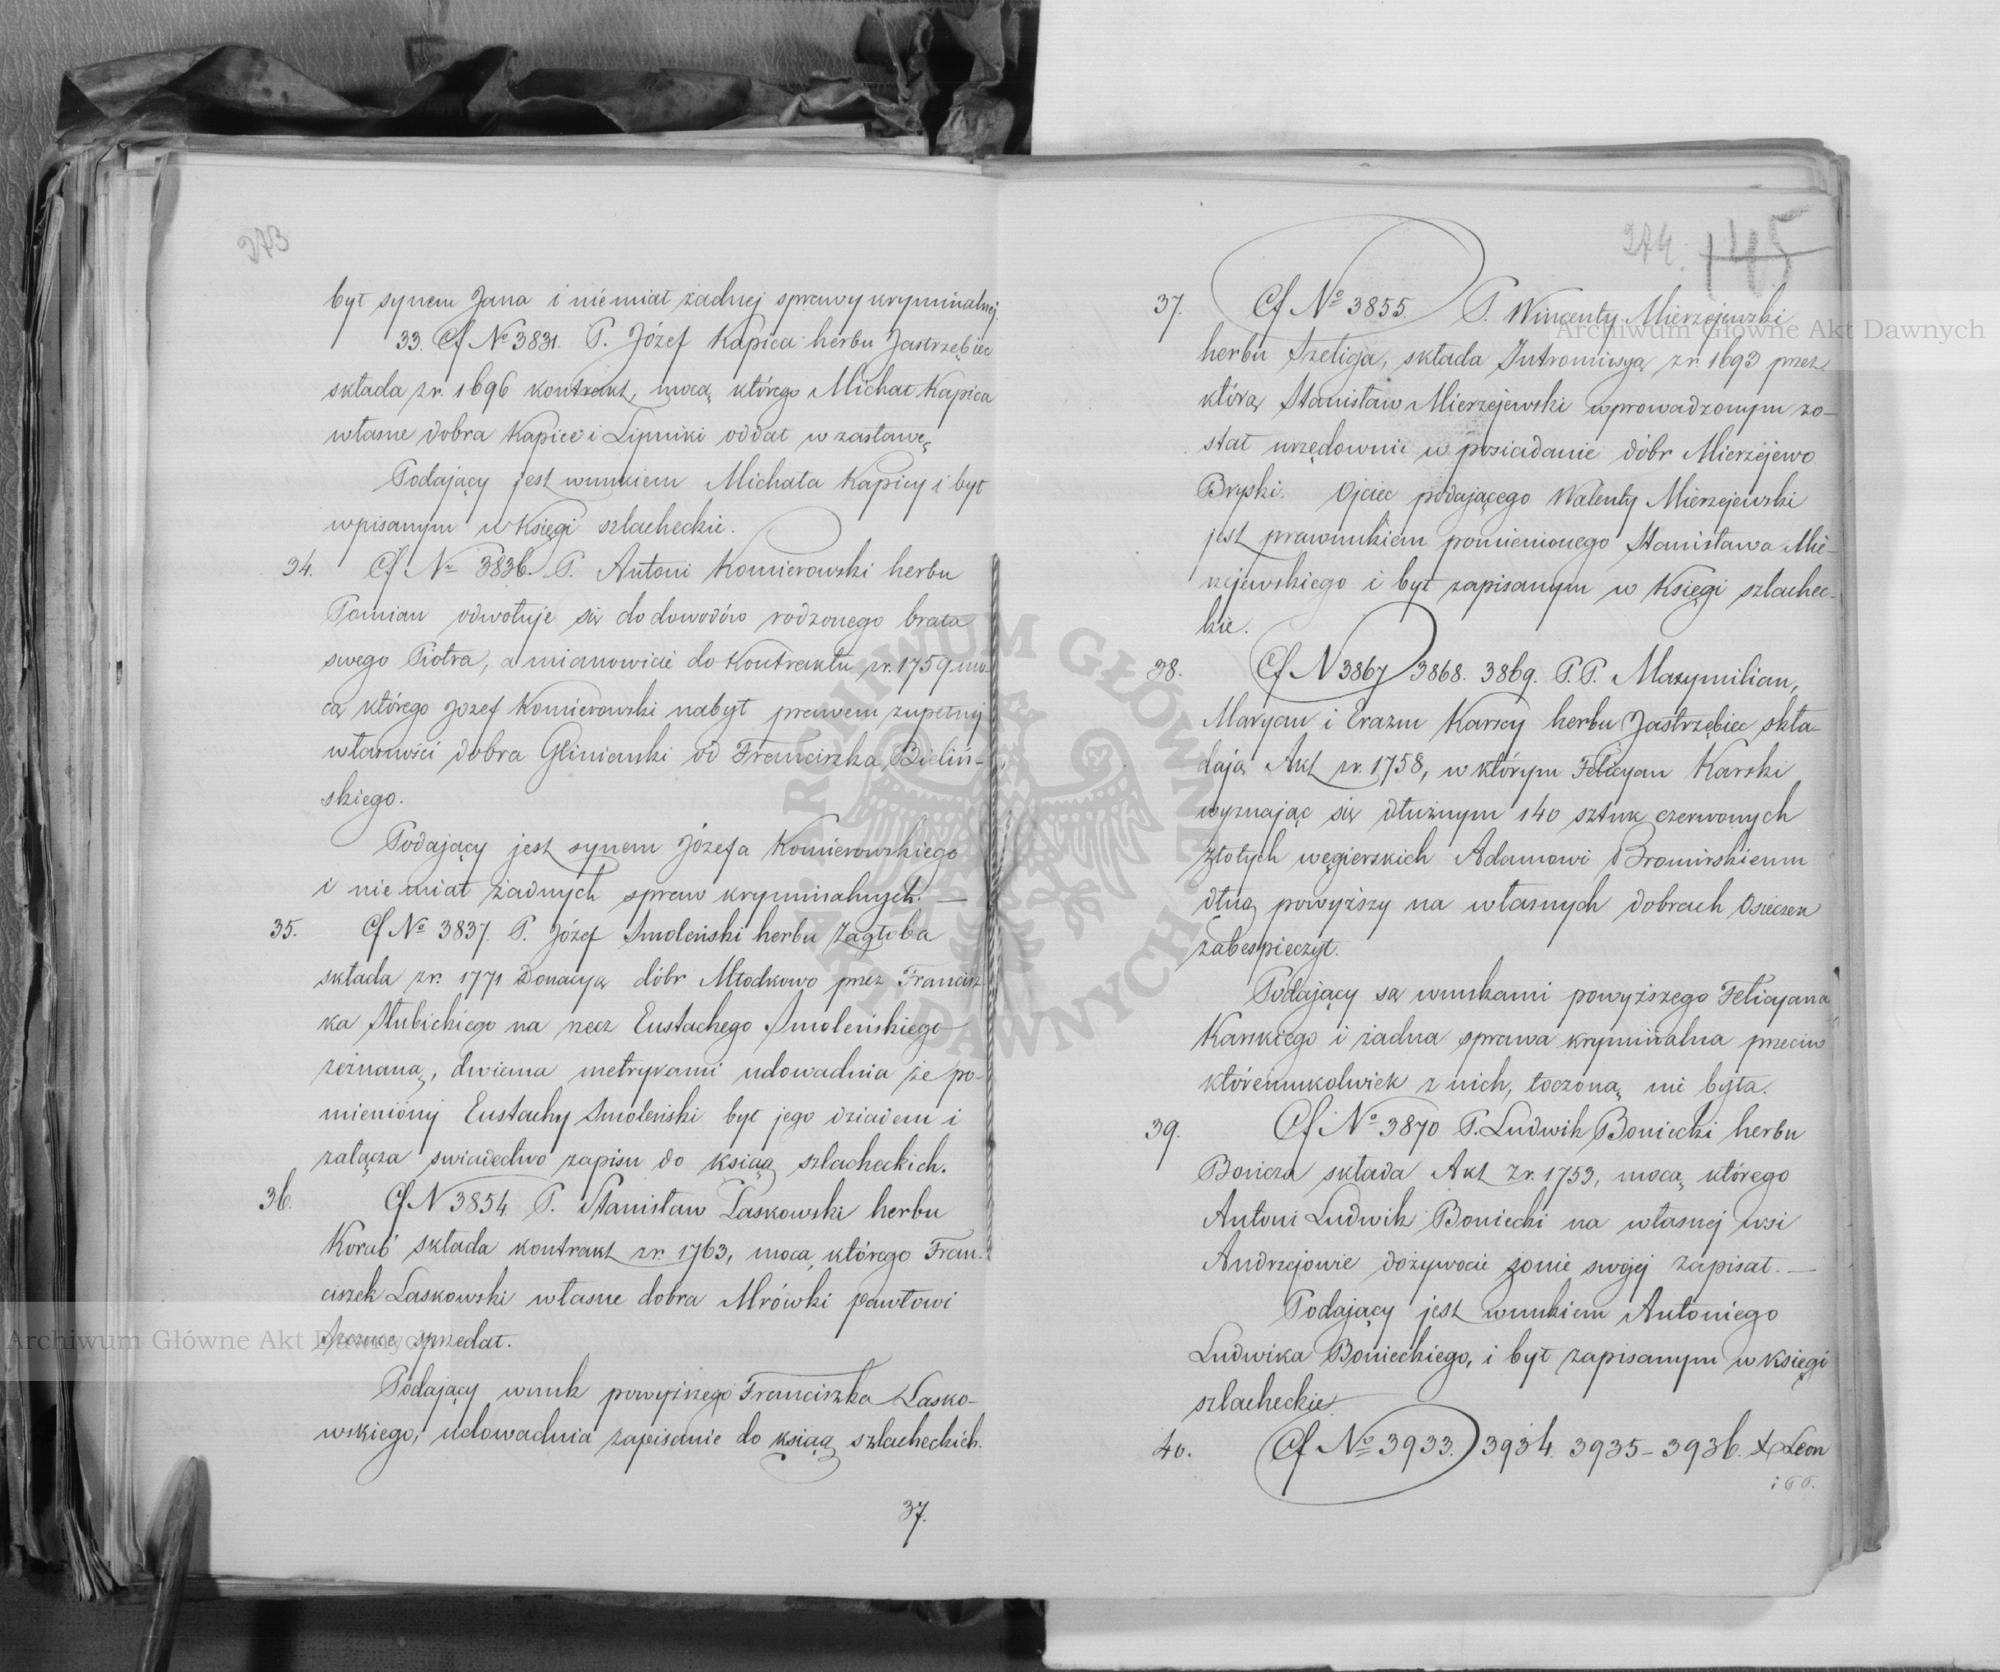 273
był synem Jana i nie miał żadnej sprawy kryminalnej.
33. Cf No 3831. P. Józef Kapica herbu Jastrzębiec
składa zr. 1696 kontrakt, mocą którego Michał Kapica
własne dobra Kapice i Lipniki oddał w zastawę
Podający jest wnukiem Michała Kapicy i był
wpisanym w Księgi szlacheckie.
34. Cf No 3836. P. Antoni Komierowski herbu
Pomian odwołuje się do dowodów rodzonego brata
swego Piotra, a mianowicie do Kontraktu zr. 1759 mo
cą którego Józef Komierowski nabył prawem zupełnej
własności dobra Glinianki od Franciszka Bieliń-
skiego.
Podający jest synem Józefa Komierowskiego
i nie miał żadnych spraw kryminalnych. —
35. Cf No 3837. P. Józef Smoleński herbu Zagłoba
składa zr. 1771 Donacyą dóbr Młodkowo przez Francisz
ka Słubickiego na rzecz Eustachego Smoleńskiego
zeznaną, dwiema metrykami udowadnia że po-
mieniony Eustachy Smoleński był jego dziadem i
załącza świadectwo zapisu do ksiąg szlacheckich.
36. Cf N 3854 P. Stanisław Laskowski herbu
Korab składa kontrakt zr. 1763, mocą którego Fran-
ciszek Laskowski własne dobra Mrówki Pawłowi
Szczuce sprzedał.
Podający wnuk powyższego Franciszka Lasko-
wskiego, udowadnia zapisanie do ksiąg szlacheckich.
37.
274. 145
37. Cf No 3855. P. Wincenty Mierzejewski
herbu Szeliga, składa Intromisyą zr. 1693 przez
którą Stanisław Mierzejewski wprowadzonym zo-
stał urzędownie w posiadanie dóbr Mierzejewo
Bryski. Ojciec podającego Walenty Mierzejewski
jest prawnukiem pomienionego Stanisława Mie-
rzejewskiego i był zapisanym w Księgi szlachec-
kie.
38. Cf N 3867 3868. 3869. P.P. Maxymilian,
Maryan i Erazm Karscy herbu Jastrzębiec skła-
dają Akt zr. 1758, w którym Felicyan Karski
wyznając się dłużnym 140 sztuk czerwonych
złotych węgierskich Adamowi Bromirskiemu
dług powyższy na własnych dobrach Osieczek
zabezpieczył.
Podający są wnukami powyższego Felicyana
Karskiego i żadna sprawa kryminalna przeciw
któremukolwiek z nich, toczoną nie była.
39. Cf No 3870 P. Ludwik Boniecki herbu
Bończa składa Akt zr. 1753, mocą którego
Antoni Ludwik Boniecki na własnej wsi
Andrzejowie dożywocie żonie swojej zapisał. —
Podający jest wnukiem Antoniego
Ludwika Bonieckiego, i był zapisanym w księgi
szlacheckie.
40. Cf No 3933. 3934. 3935 - 3936. Leon
Archiwum Główne Akt Dawnych
Archiwum Główne Akt Dawnych
ARCHIWUM GŁÓWNE AKT DAWNYCH